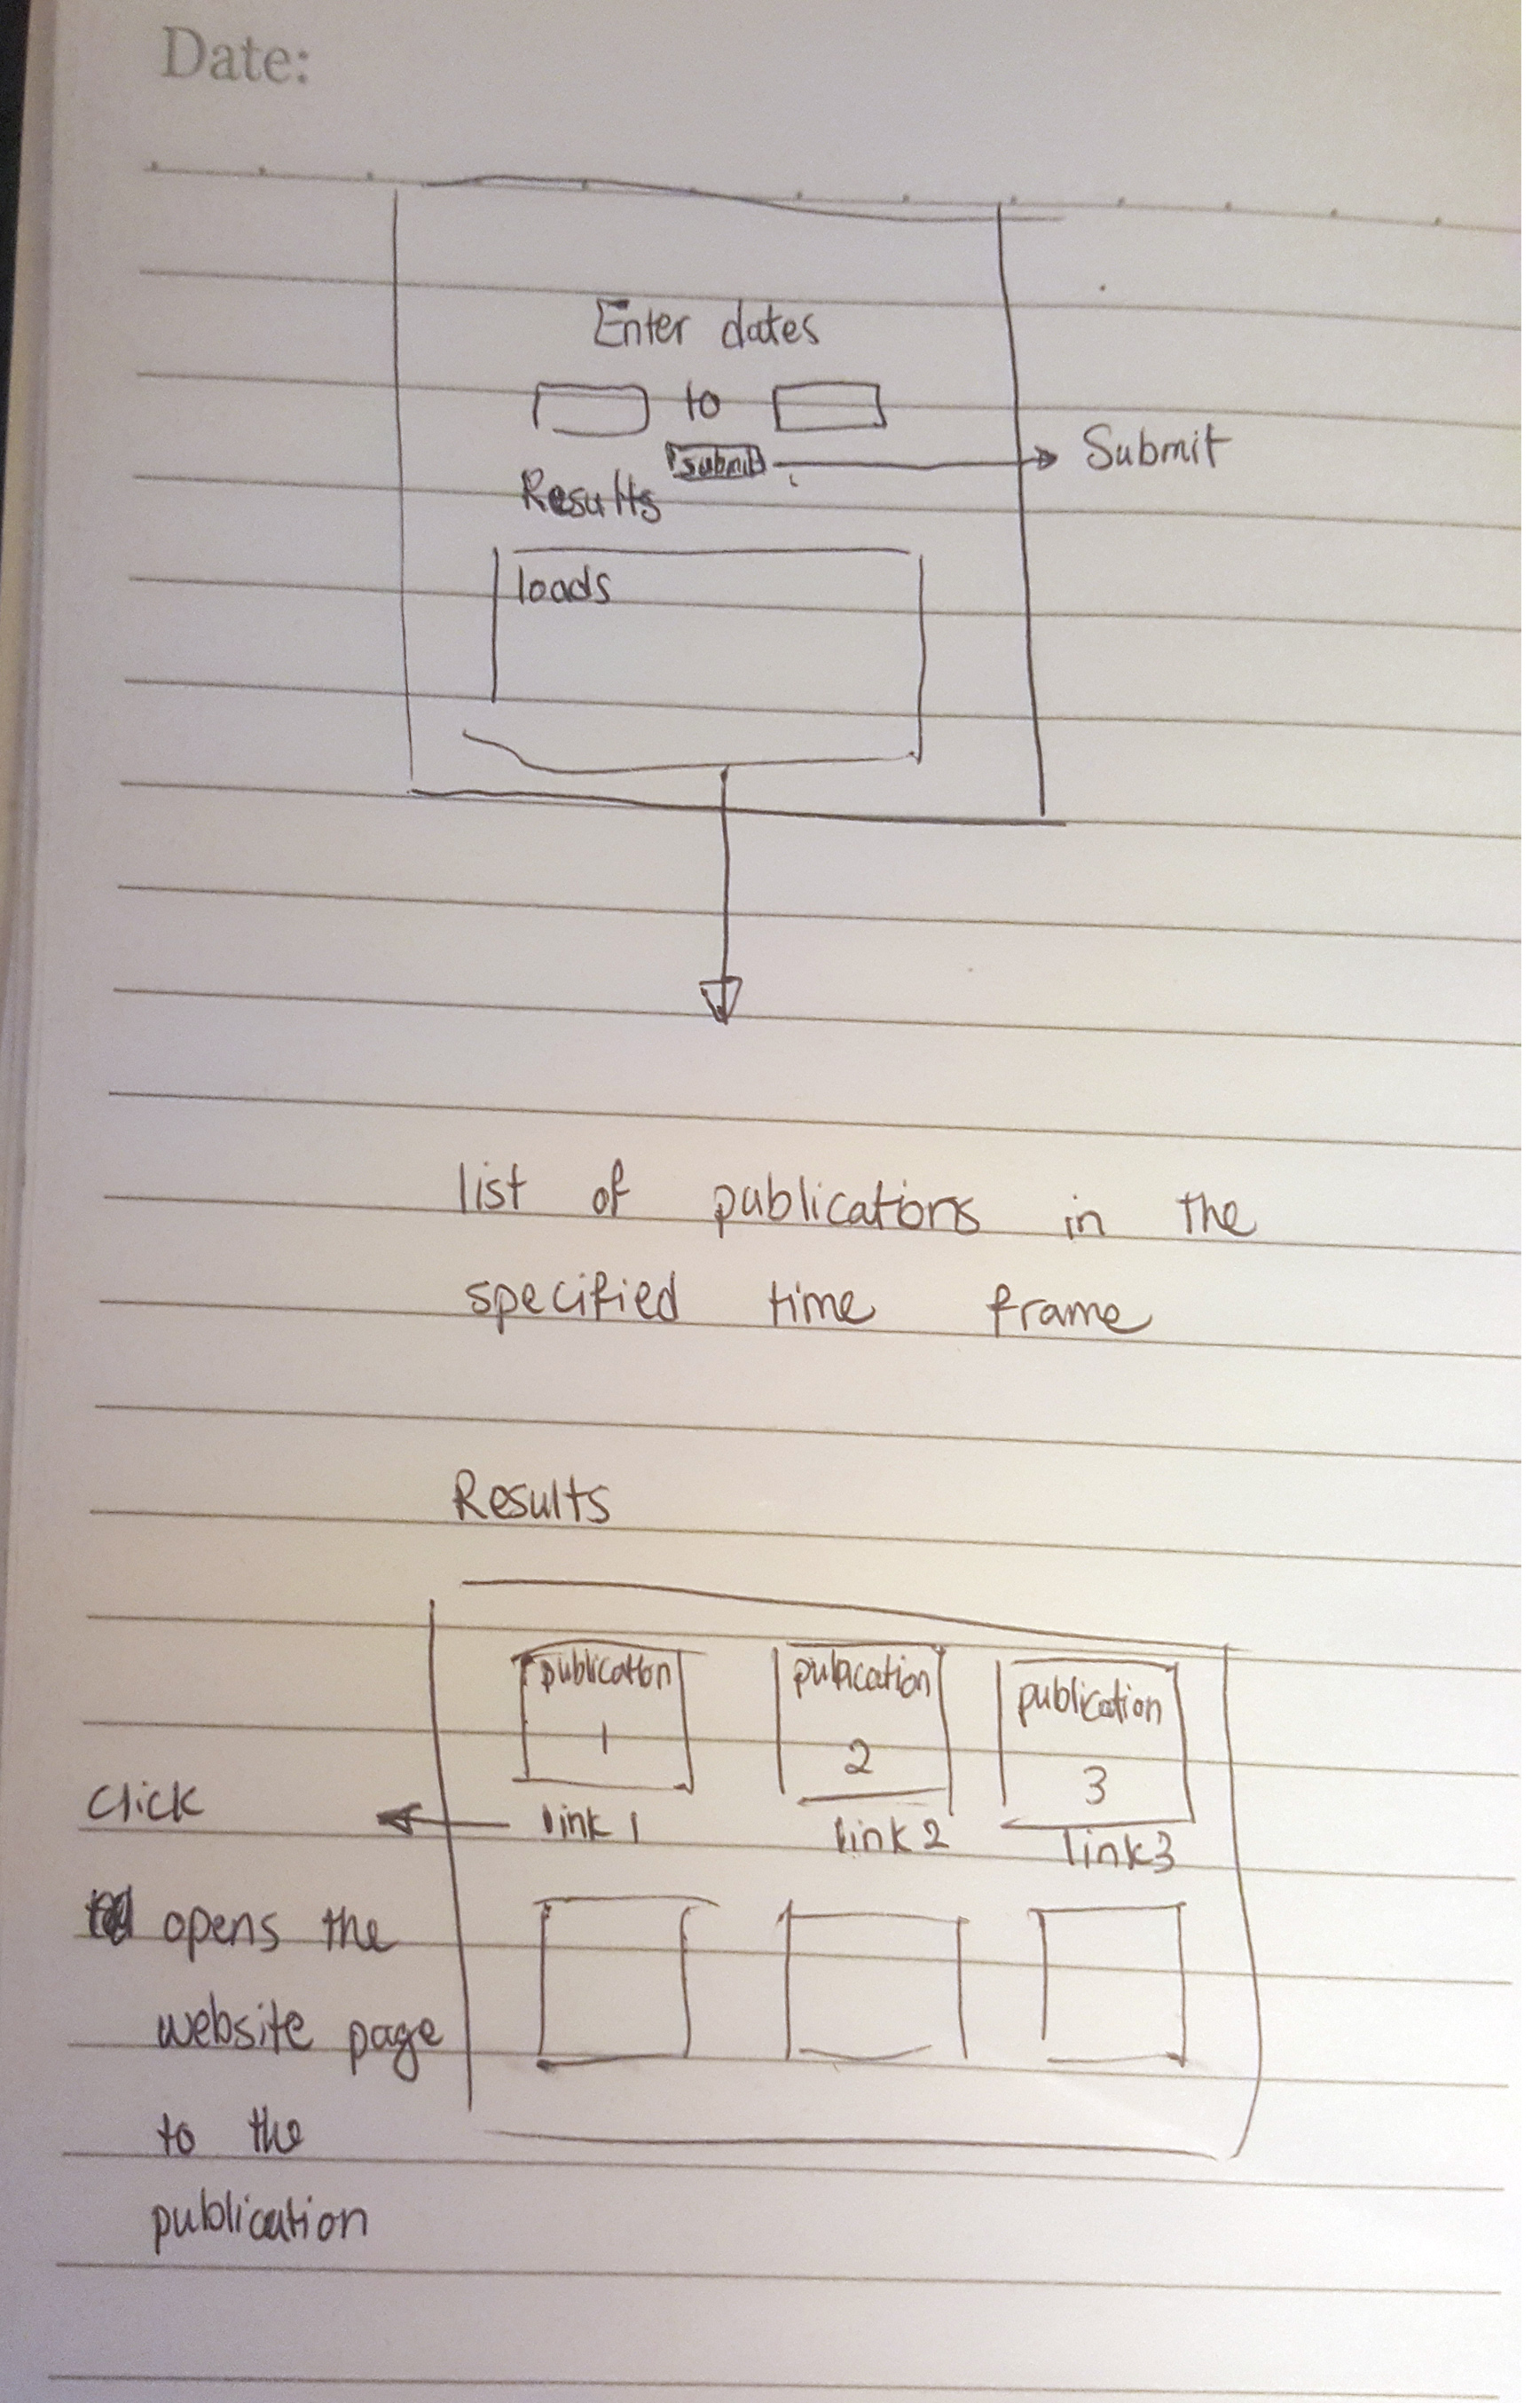 Date:
Enter dates
to
submit
Submit
Results
loads
list of publications in the
specified time frame
Results
publication
1
publication
2
publication
3
link 1
link 2
link3
Click
opens the
website page
to the
publication